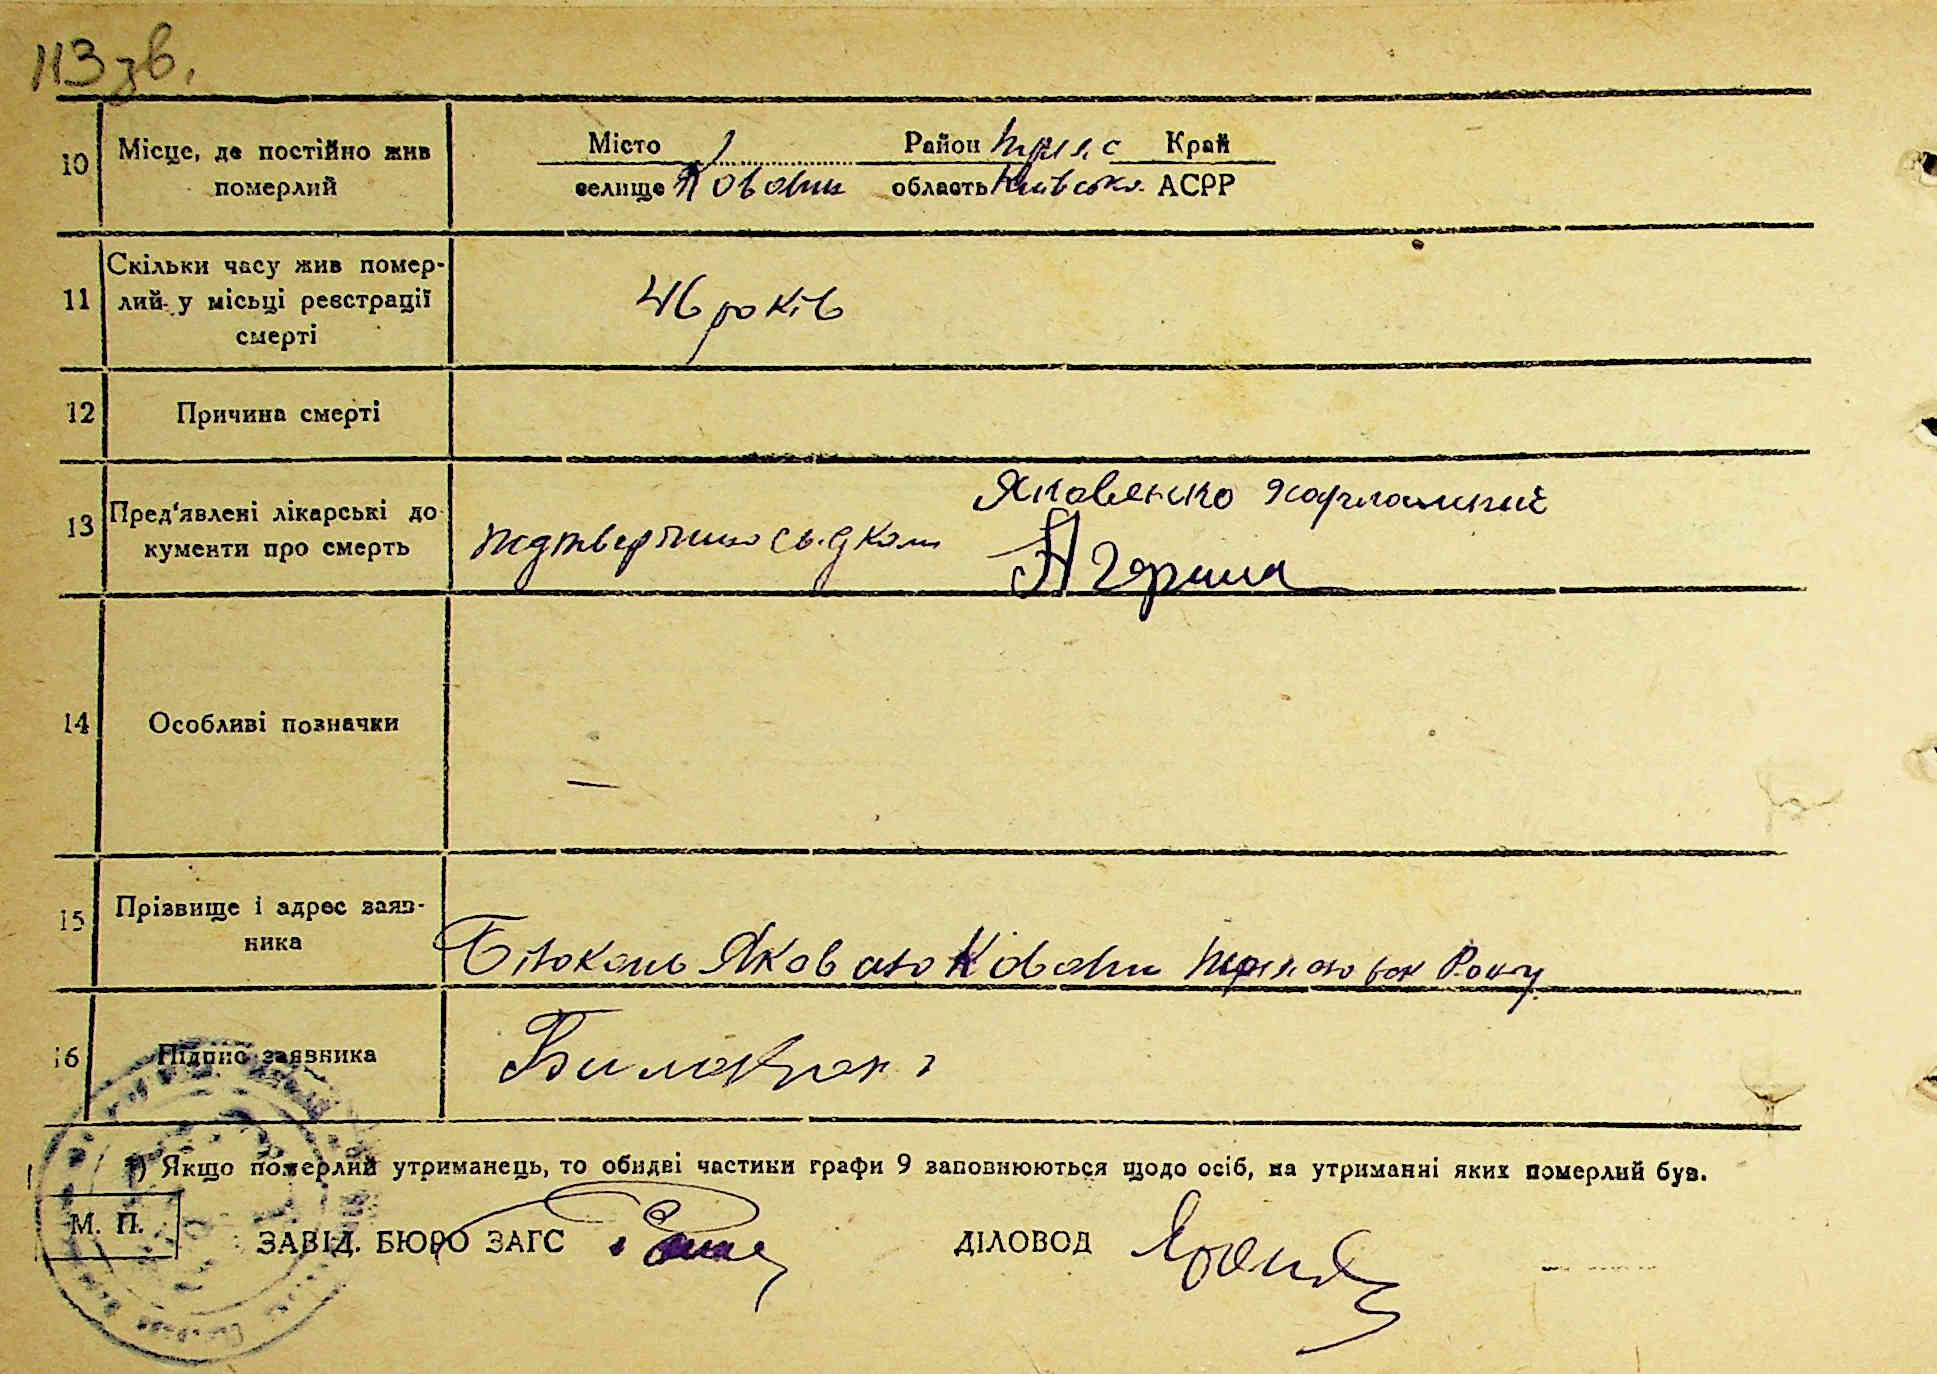 113 зв.
10 Місце, де постійно жив померлий
Місто Район Край
селище Ковали область Київська АСРР
11 Скільки часу жив помер-
лий у місьці реєстрації
смерті
46 років
12 Причина смерті
13 Пред'явлені лікарські до
кументи про смерть
Яковенко
14 Особливі позначки
—
15 Прізвище і адрес заяв-
ника
Білоконь Яков Ковали
16 Підпис заявника
*) Якщо померлий утриманець, то обидві частини графи 9 заповнюються щодо осіб, на утриманні яких померлий був.
М. П.
ЗАВІД. БЮРО ЗАГС ДІЛОВОД